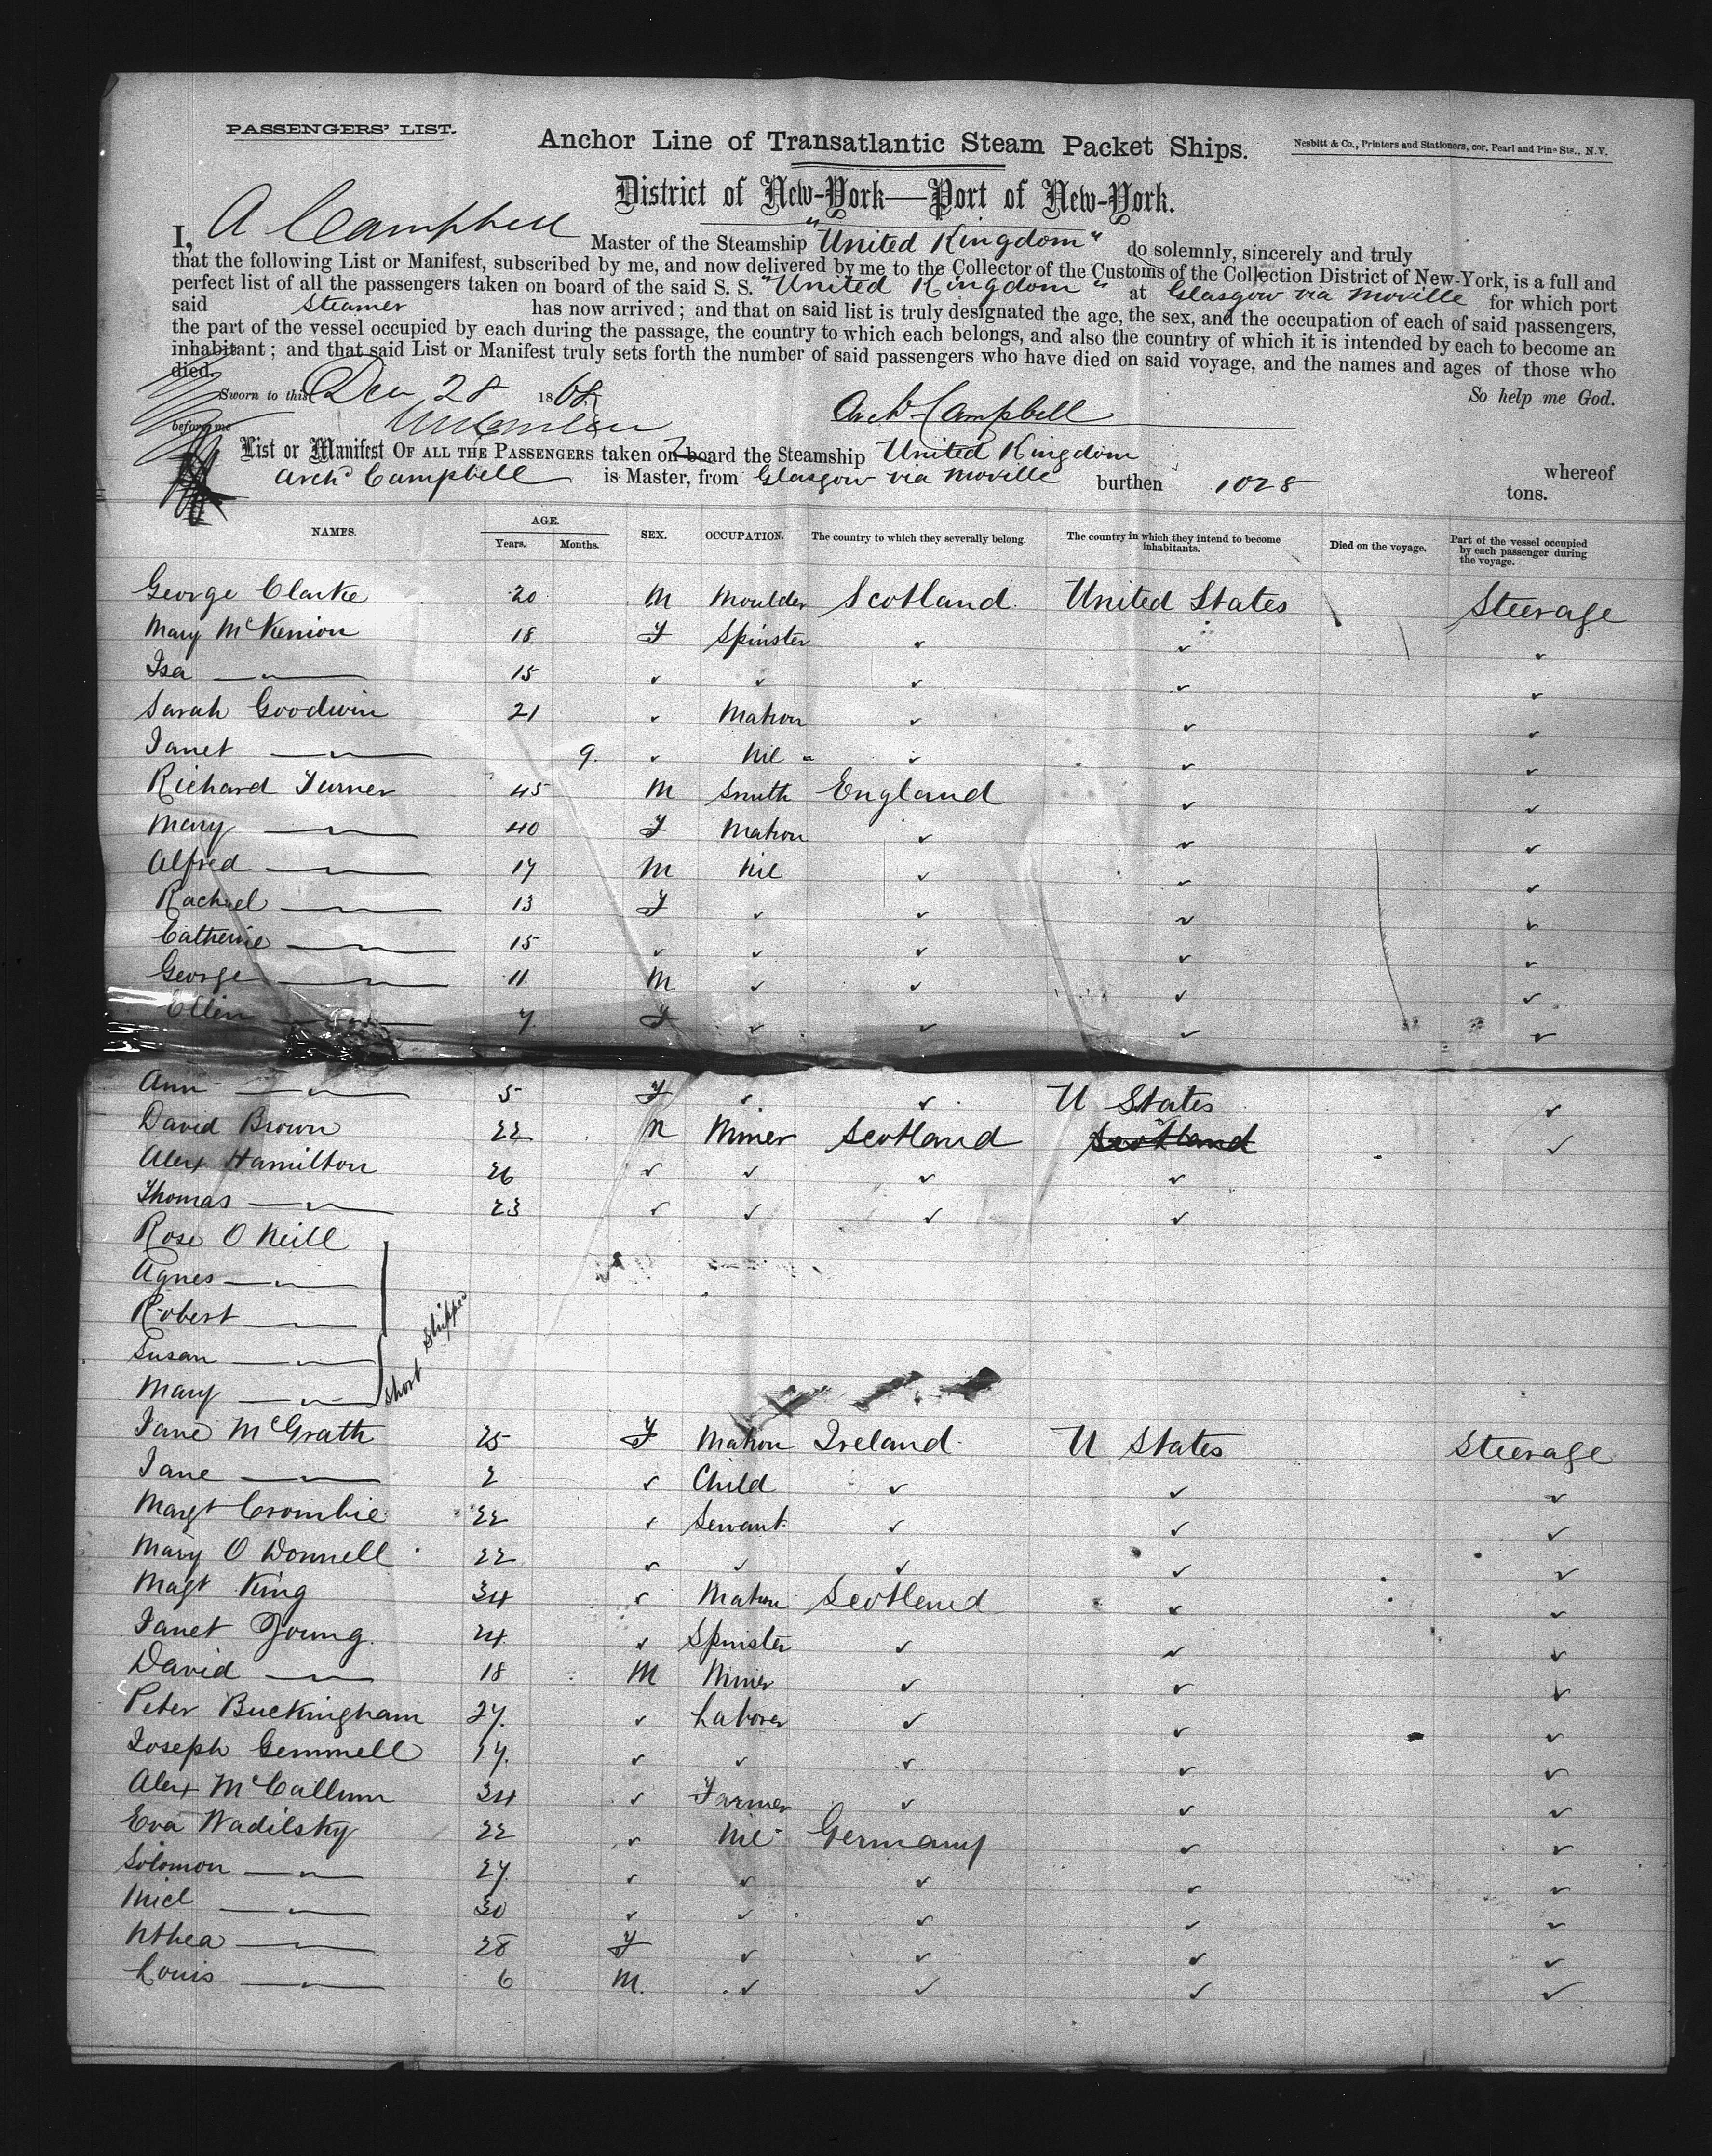 PASSENGERS' LIST.
Anchor Line of Transatlantic Steam Packet Ships.
Nesbitt & Co., Printers and Stationers, cor. Pearl and Pine Sts., N.Y.
District of New-York—Port of New-York.
I, A Campbell Master of the Steamship "United Kingdom" do solemnly, sincerely and truly
that the following List or Manifest, subscribed by me, and now delivered by me to the Collector of the Customs of the Collection District of New-York, is a full and
perfect list of all the passengers taken on board of the said S. S. "United Kingdom" at Glasgow via Moville for which port
said Steamer has now arrived; and that on said list is truly designated the age, the sex, and the occupation of each of said passengers,
the part of the vessel occupied by each during the passage, the country to which each belongs, and also the country of which it is intended by each to become an
inhabitant; and that said List or Manifest truly sets forth the number of said passengers who have died on said voyage, and the names and ages of those who
died. So help me God.
Sworn to this Dec 28 1868
before me Archd Campbell
List or Manifest OF ALL THE PASSENGERS taken on board the Steamship United Kingdom whereof
Archd Campbell is Master, from Glasgow via Moville burthen 1028 tons.
NAMES. AGE. Years. Months. SEX. OCCUPATION. The country to which they severally belong. The country in which they intend to become inhabitants. Died on the voyage. Part of the vessel occupied by each passenger during the voyage.
George Clarke 20 M Moulder Scotland United States Steerage
Mary McKenion 18 F Spinster ✓ ✓ ✓
Isa —"— 15 ✓ ✓ ✓ ✓ ✓
Sarah Goodwin 21 ✓ Matron ✓ ✓ ✓
Janet —"— 9 ✓ Nil ✓ ✓ ✓
Richard Turner 45 M Smith England ✓ ✓
Mary —"— 40 F Matron ✓ ✓ ✓
Alfred —"— 17 M Nil ✓ ✓ ✓
Rachael —"— 13 F ✓ ✓ ✓ ✓
Catherine —"— 15 ✓ ✓ ✓ ✓ ✓
George —"— 11 M ✓ ✓ ✓ ✓
Ellen —"— 7 F ✓ ✓ ✓ ✓
Ann —"— 5 F ✓ ✓ U States ✓
David Brown 22 M Miner Scotland Scotland ✓
Alex Hamilton 26 ✓ ✓ ✓ ✓
Thomas —"— 23 ✓ ✓ ✓ ✓
Rose O Neill
Agnes —"—
Robert —"—
Susan —"—
Mary —"—
Short Shipped
Jane McGrath 25 F Matron Ireland U States Steerage
Jane —"— 2 ✓ Child ✓ ✓ ✓
Margt Crombie 22 ✓ Servant ✓ ✓ ✓
Mary O Donnell 22 ✓ ✓ ✓ ✓ ✓
Magt King 34 ✓ Matron Scotland ✓ ✓
Janet Young 24 ✓ Spinster ✓ ✓ ✓
David —"— 18 M Miner ✓ ✓ ✓
Peter Buckingham 27 ✓ Laborer ✓ ✓ ✓
Joseph Gemmell 17 ✓ ✓ ✓ ✓ ✓
Alex McCallum 34 ✓ Farmer ✓ ✓ ✓
Eva Wadilsky 22 ✓ Nil Germany ✓ ✓
Solomon —"— 27 ✓ ✓ ✓ ✓ ✓
Micl —"— 30 ✓ ✓ ✓ ✓ ✓
Nthea —"— 28 F ✓ ✓ ✓ ✓
Louis —"— 6 M. ✓ ✓ ✓ ✓